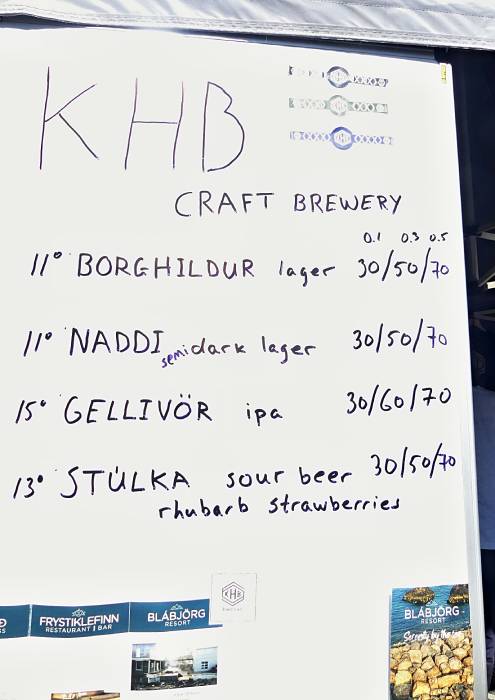 KHB
CRAFT BREWERY
0.1 0.3 0.5
11° BORGHILDUR lager 30/50/70
11° NADDI semidark lager 30/50/70
15° GELLIVÖR ipa 30/60/70
13° STÚLKA sour beer 30/50/70
rhubarb strawberries
FRYSTIKLEFINN
RESTAURANT & BAR
BLÁBJÖRG
RESORT
KHB
BLÁBJÖRG
RESORT
Serenity by the sea